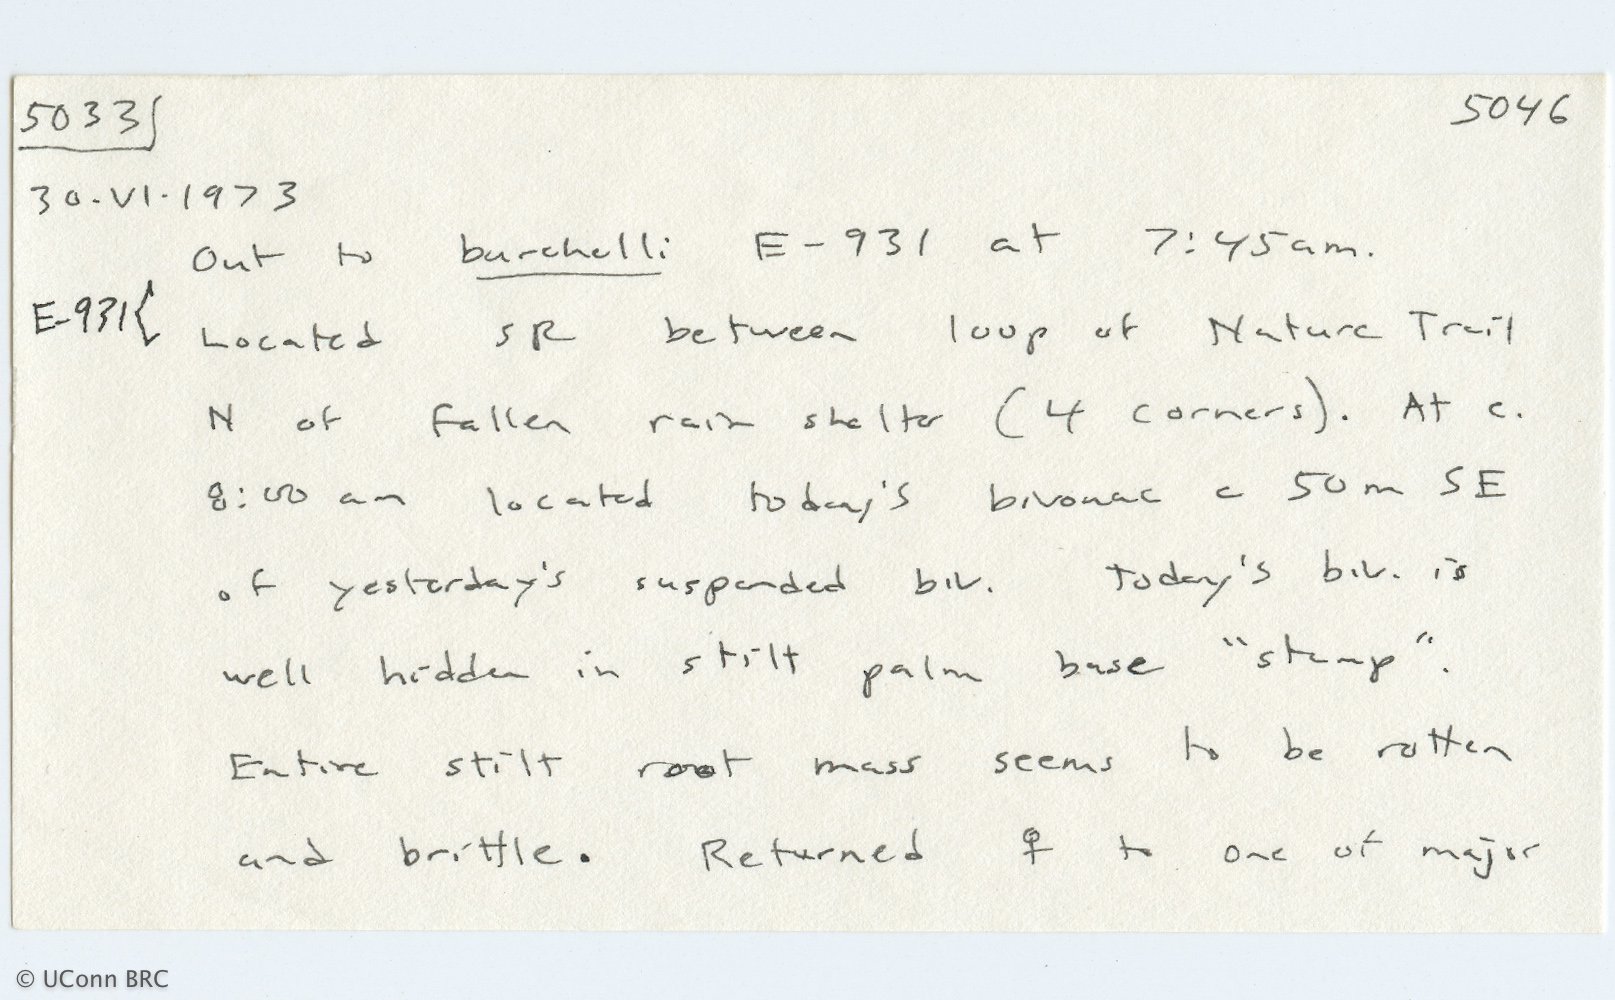 5033}
5046
30.VI.1973
Out to burchelli E-931 at 7:45am.
E-931{
Located SR between loop of Nature Trail
N of fallen rain shelter (4 corners). At c.
8:00 am located today's bivouac c 50m SE
of yesterday's suspended biv. Today's biv. is
well hidden in stilt palm base "stump".
Entire stilt root mass seems to be rotten
and brittle. Returned ♀ to one of major
© UConn BRC